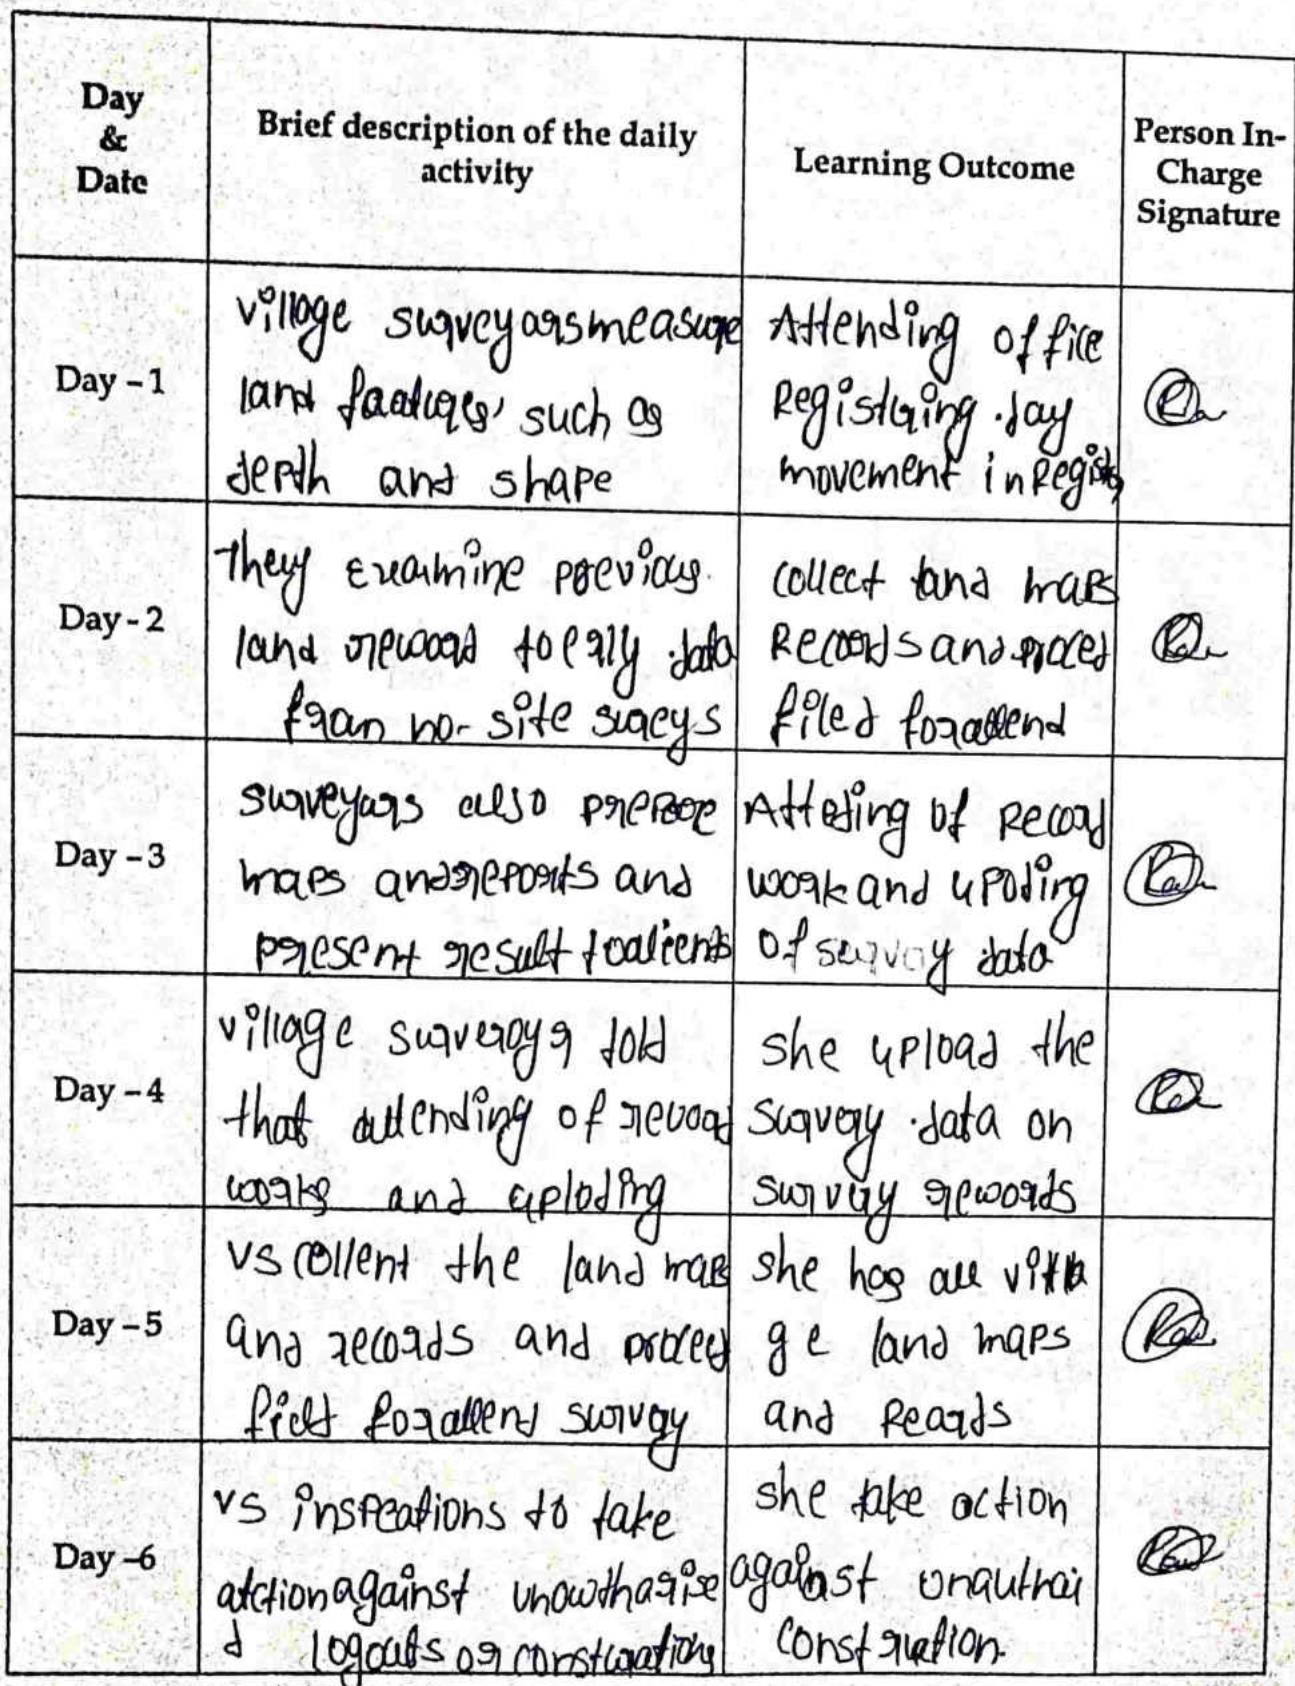 Day
&
Date
Brief description of the daily
activity
Learning Outcome
Person In-
Charge
Signature
Day - 1
village surveyors measure
land features such as
depth and shape
Attending office
Registering day
movement in Register
Day - 2
They examine previous
land record to data
from no-site surveys
collect land maps
Records and proced
filed for attend
Day - 3
surveyors also prepare
maps and reports and
present result to clients
Atteding of Record
work and upoding
of survay data
Day - 4
village told
that attending of record
works and uploding
she upload the
survery data on
survay records
Day - 5
VS collent the land maps
and records and proceed
field for attend survay
she has all villa
ge land maps
and Reards
Day -6
VS inspeations to take
atction against unowtharise
d logouts or consturation
she take action
against unauthai
construation.